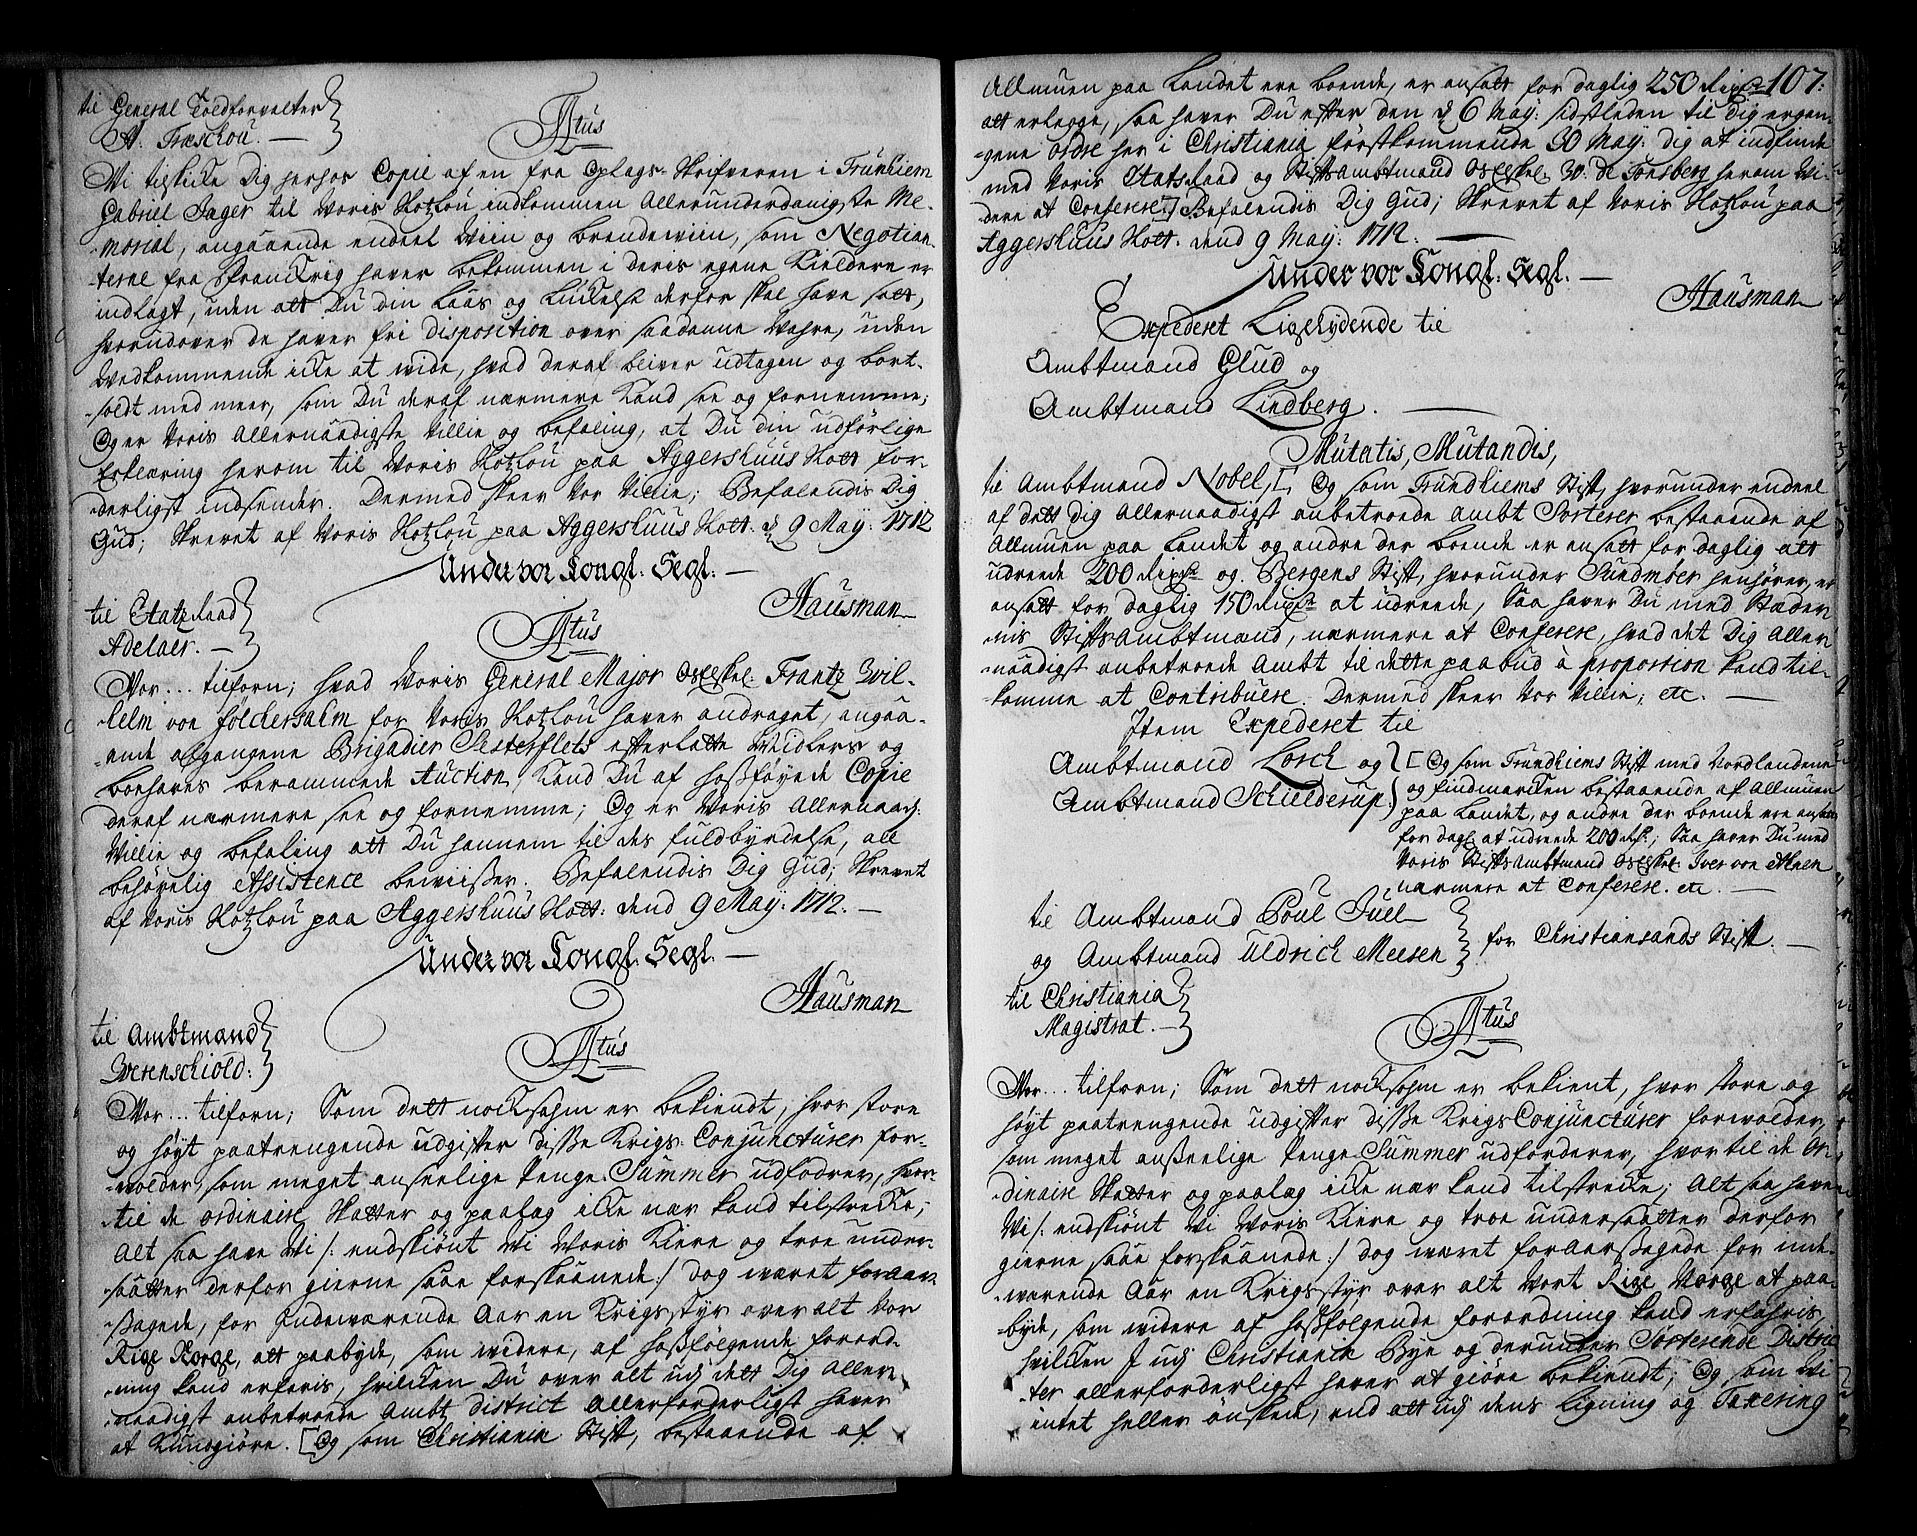 til General Toldforvalter
H. Træschou. —
Titus
Wi tilskicke Dig herhos Copie af en fra Oplags-Skrifveren i Trundhiem
Gabriel Jager til Voris Slotzlou indkommen Allerunderdanigste Me-
-morial, angaaende endeel Wiin og brendewiin, som Negotian-
-terne fra Franckrig haver bekommen i deris egene Kieldere er
indlagt, uden att Du din Laas og Luckelse derfor skal have satt,
hvorudover de haver fri disposition over saadanne Wahre, uden
Vedkommende icke at wide, hvad deraf bliver udtagen og bort-
-soldt med meer, som Du deraf nærmere kand see og fornemme;
Og er Voris Allernaadigste Villie og befaling, at Du din udförlige
Erklæring herom til Voris Slotzlou paa Aggershuus Slott for-
derligst indsender. Dermed skeer Vor Villie; Befalendis Dig
Gud; Skrevet af Voris Slotzlou paa Aggershuus Slott. d 9 May: 1712
Under vor Kongl. Segl. —
Hausman
til Etatz Raad
Adelaer. —
Titus
Vor... tilforn; hvad Voris General Major Os Elskel: Frantz Wil-
helm von Földersalm for Voris Slotzlou haver andraget, angaa-
-ende afgangene Brigadier Sesterflets efterlatte Meidlers og
boehaves berammede Auction, Kand Du af hosföyede Copie
deraf nærmere see og fornemme; Og er Voris Allernaad:
Villie og befaling att Du hannem til des fuldbyrdelse, all
behövelig Assistence beviiser. Befalendis Dig Gud; Skrevet
af Voris Slotzlou paa Aggershuus Slott: dend 9 May: 1712. —
Under vor Kongl. Segl. —
Hausman
til Ambtmand
Werenschiold:
Titus
Vor... tilforn; Som dett nocksohm er bekiendt, hvor store
og höyt paatrengende udgifter disse Krigs-Conjuncturer for-
-volder, som meget anseelige Penge-Summer udfodrer, hvor-
til de ordinaire Skatter og paalag icke nær kand tilstrecke;
Alt saa have Wi /: endskiönt Wi Voris Kiere og troe under-
saatter derfor gierne saae forskaanede :/ dog været foraar-
sagede, for Indeværende Aar en Krigsstyr over alt Vor
Rige Norge, att paabyde, som widere, af hosfölgende forord-
-ning kand erfaris, hvilcken Du over alt udj dett Dig Aller-
-naadigst anbetroede Ambtz District allerforderligst haver
at kundgiöre. [Og som Christiania Stift, bestaaende af
107:
Allmuen paa Landet ere boende, er ansatt for daglig 250 Rixdr
att erlegge, saa haver Du efter den d 6 May: sidstleden til Dig ergan-
-gene ordre her i Christiania förstkommende 30 May: dig at indfinde
med Voris Etatsraad og Stiftsambtmand Os Elskel: 30. de Tonsberg herom Wi-
dere at Conferere.] Befalendis Dig Gud; Skrevet af Voris Slotzlou paa
Aggershuus Slott. dend 9 May: 1712. —
Under vor Kongl. Segl. —
Hausman
Expederet Ligelydende til
Ambtmand Glud og
Ambtmand Lindberg. —
Mutatis, Mutandis,
til Ambtmand Nobel, [Og som Trundhiems Stift, hvorunder endeel
af dett dig Allernaadigst anbetroede ambt Sorterer bestaaende af
Allmuen paa Landet og andre der boende er ansatt for daglig att
udreede 200 Rixdr og Bergens Stift, hvorunder Sundmöer henhörer, er
ansatt for daglig 150 Rixdr at udreede, Saa haver Du med Steder-
nis Stiftsambtmænd, nærmere at Conferere, hvad det Dig Aller-
-naadigst anbetroede Ambt til dette paabud à proportion kand til-
komme at Contribuere. Dermed skeer Vor Villie; etc. —
Item Expederet til
Ambtmand Lorch og
Ambtmand Schielderup.
[Og som Trundhiems Stift med Nordlandene
og findmarcken bestaaende af Allmuen
paa Landet, og andre der boende ere ansatt
for dagl at udreede 200 Rdr; Saa haver Du med
Voris Stiftsambtmand Os Elskel. Iver von Ahnen
nærmere at Conferere. etc. —
til Ambtmand Poul Juel
og Ambtmand Uldrich Meesen
for Christiansands Stift. —
til Christiania
Magistrat. —
Titus
Vor... tilforn; Som dett nocksohm er bekient, hvor store og
höyt paatrengende udgifter disse Krigs Conjuncturer forvolder,
som meget anseelige Penge-Summer udforderer, hvor til de or-
-dinaire Skatter og paalag icke nær kand tilstrecke; Alt saa haver
Wi /: endskiönt Wi Voris Kiere og troe undersaatter derfor
gierne saae forskaanede :/ dog været foraarsagede for inde-
-værende Aar en Krigsstyr over alt Vort Rige Norge at paa-
byde, som widere af hosfölgende forordning kand erfahris,
hvilcken I udj Christiania Bye og derunder Sorterende Distric-
-ter allerforderligst haver at giöre bekiendt; Og som Wi
intet heller önskede, end att udj dens ligning og Taxering